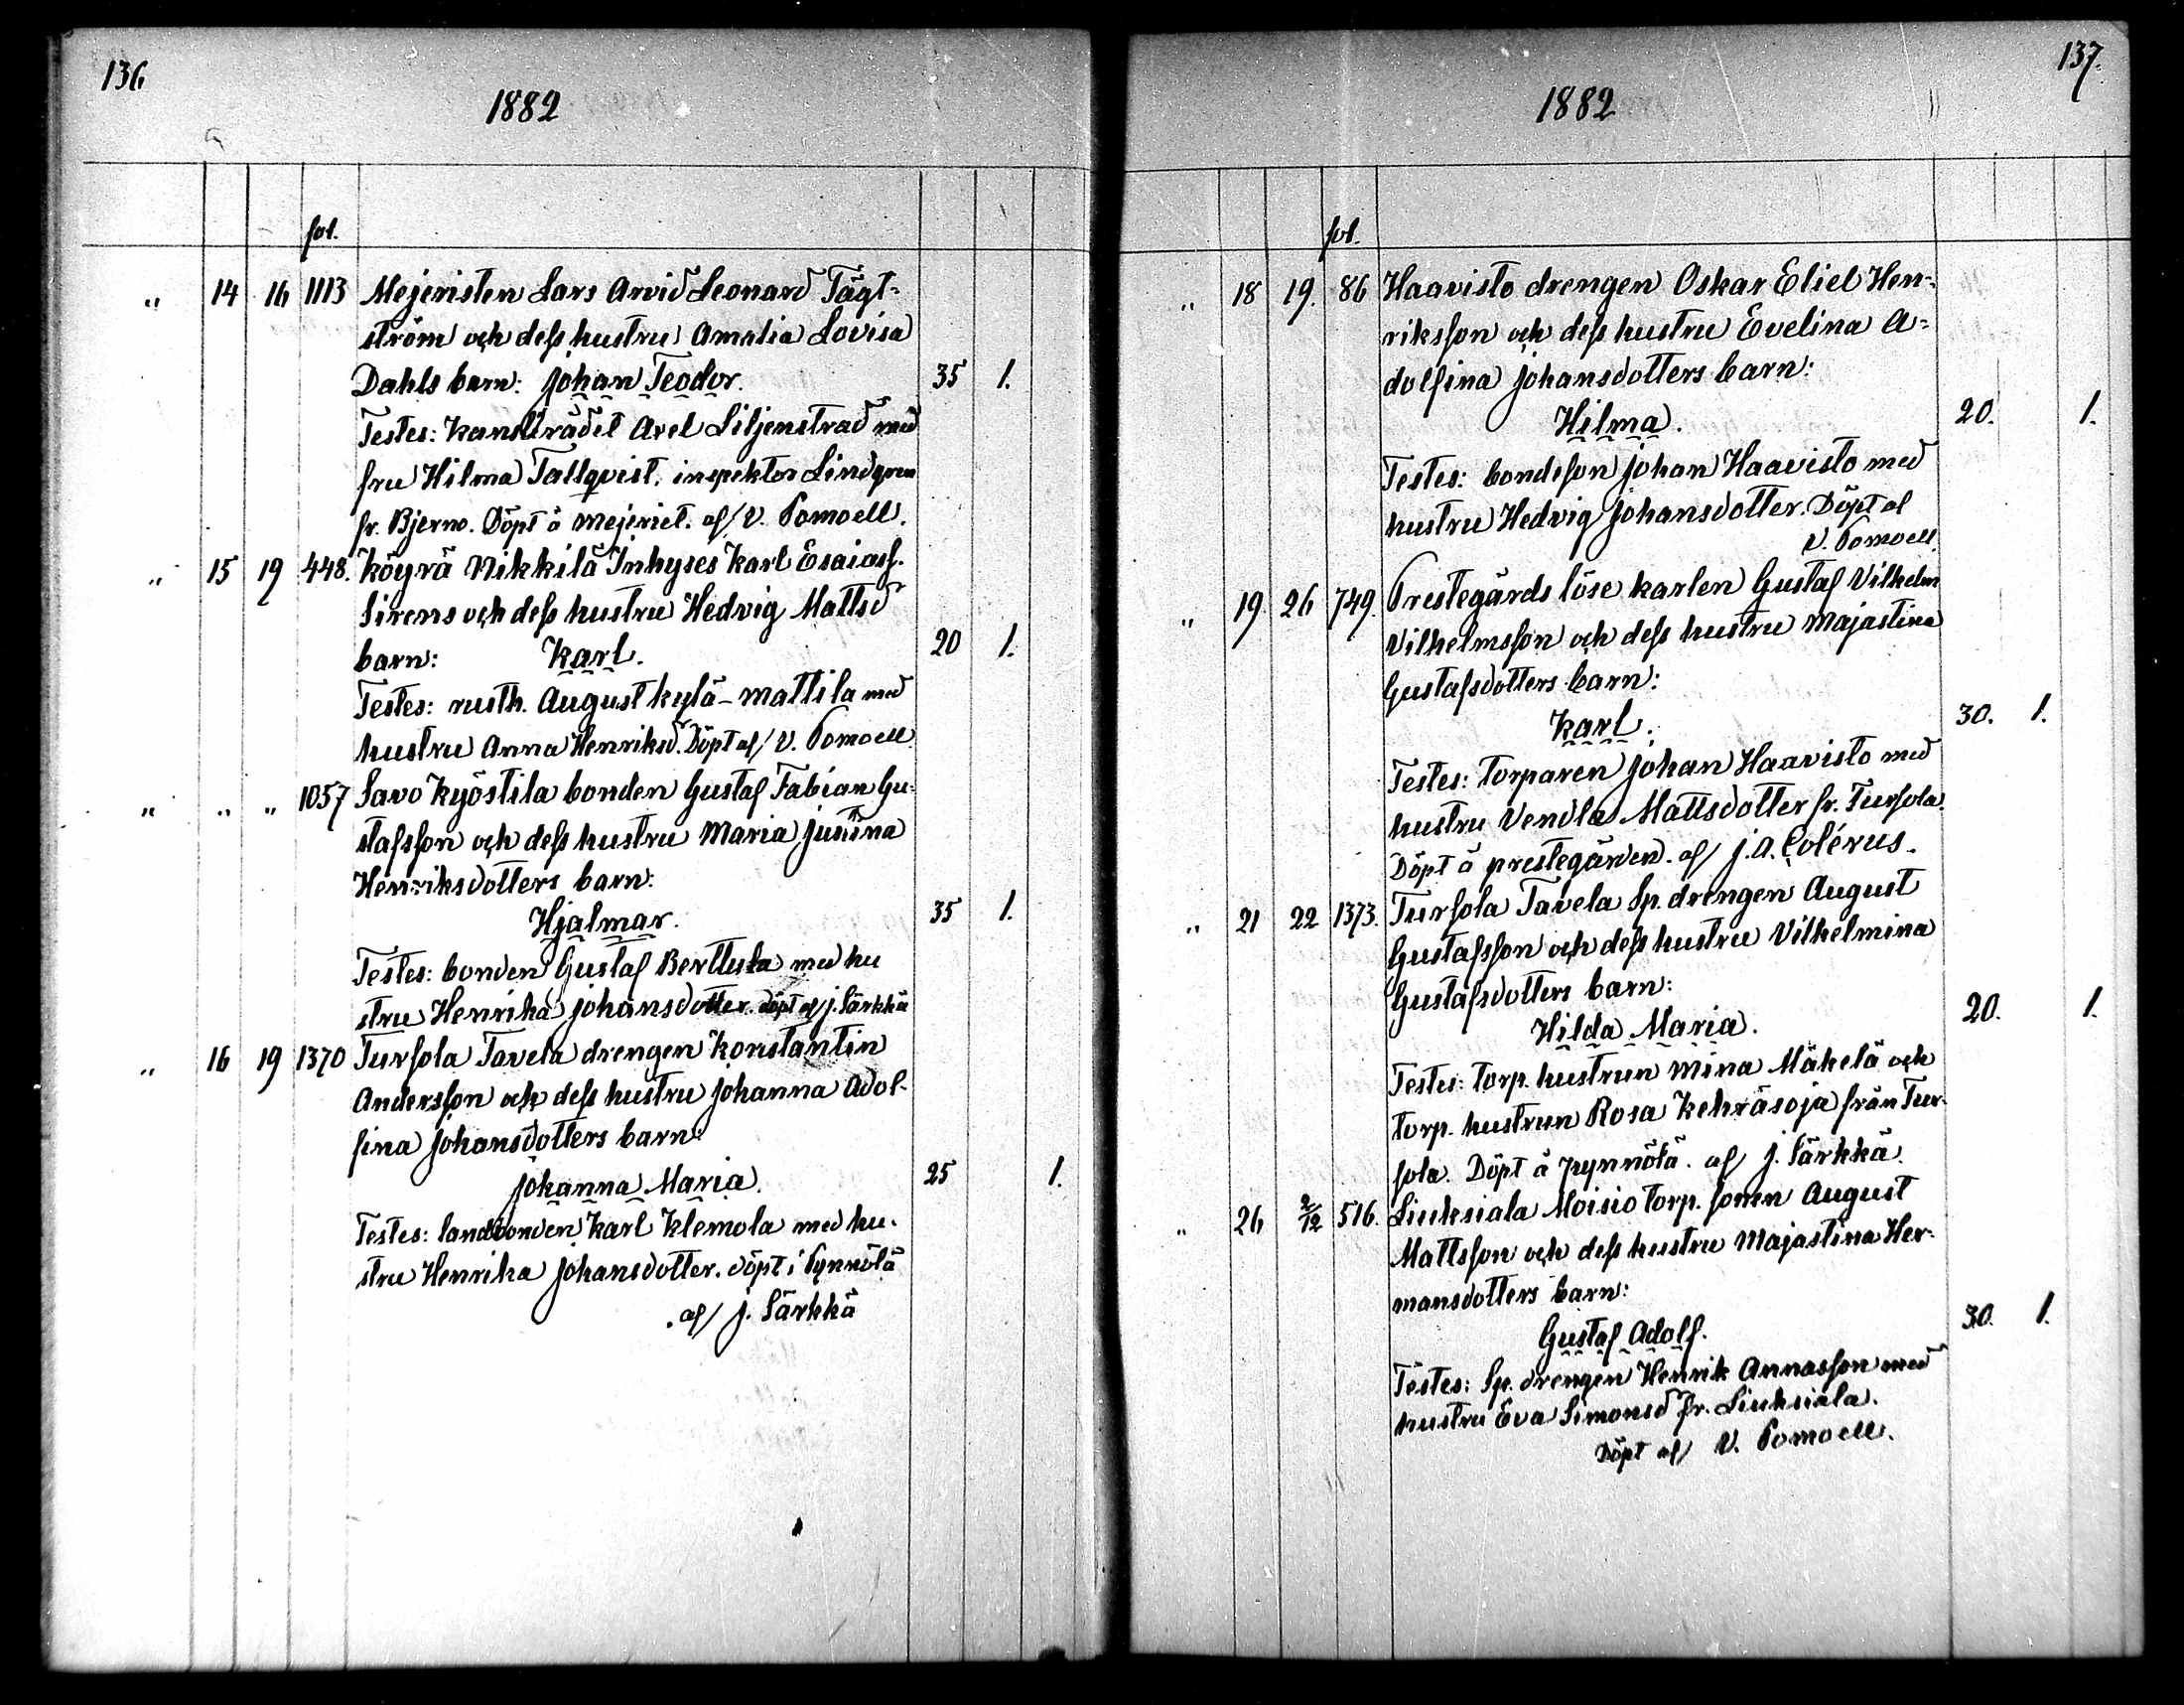 136
1882
fol.
„ 14 16 1113 Mejeristen Lars Arvid Leonard Tägt-
ström och dess hustru Amalia Lovisa
Dahls barn: Johan Teodor. 35 1.
Testes: Kanslirådet Axel Liljenstrad med
fru Hilma Tallqvist, inspektor Lindgren
fr. Bjerno. Döpt å mejeriet. af V. Pomoell.
„ 15 19 448. Köyrä Nikkilä Inhyses Karl Esaiass.
Sirens och dess hustru Hedvig Mattsd
barn: Karl. 20 1.
Testes: rusth. August Kylä-Mattila med
hustru Anna Henriksd. Döpt af V. Pomoell.
„ „ „ 1057 Savo Kyöstila bonden Gustaf Fabian Gu-
stafsson och dess hustru Maria Justina
Henriksdotters barn:
Hjalmar. 35 1.
Testes: bonden Gustaf Berttula med hu
stru Henrika Johansdotter. Döpt af J. Särkkä
„ 16 19 1370 Tursola Tavela drengen Konstantin
Andersson och dess hustru Johanna Adol-
fina Johansdotters barn:
Johanna Maria. 25 1.
Testes: landbonden Karl Klemola med hu-
stru Henrika Johansdotter. döpt i Pynnölä
. af J. Särkkä
137.
1882
fol.
„ 18 19. 86 Haavisto drengen Oskar Eliel Hen-
riksson och dess hustru Evelina A-
dolfina Johansdotters barn:
Hilma. 20. 1.
Testes: bondeson Johan Haavisto med
hustru Hedvig Johansdotter. Döpt af
V. Pomoell.
„ 19 26 749. Prestegårds löse karlen Gustaf Vilhelm
Vilhelmsson och dess hustru Majastina
Gustafsdotters barn:
Karl. 30. 1.
Testes: torparen Johan Haavisto med
hustru Vendla Mattsdotter fr. Tursola.
Döpt å prestegården. af J. A. Colérus.
„ 21 22 1373. Tursola Tavela Sp. drengen August
Gustafsson och dess hustru Vilhelmina
Gustafsdotters barn:
Hilda Maria. 20. 1.
Testes: torp. hustrun Mina Mäkelä och
torp. hustrun Rosa Kehräsoja från Tur-
sola. Döpt å pynnölä. af J. Särkkä.
„ 26 2/12 516. Liuksiala Moisio torp. sonen August
Mattsson och dess hustru Majastina Her-
mansdotters barn:
Gustaf Adolf. 30. 1.
Testes: Sp. drengen Henrik Annasson med
hustru Eva Simonsd fr. Liuksiala.
Döpt af V. Pomoell.